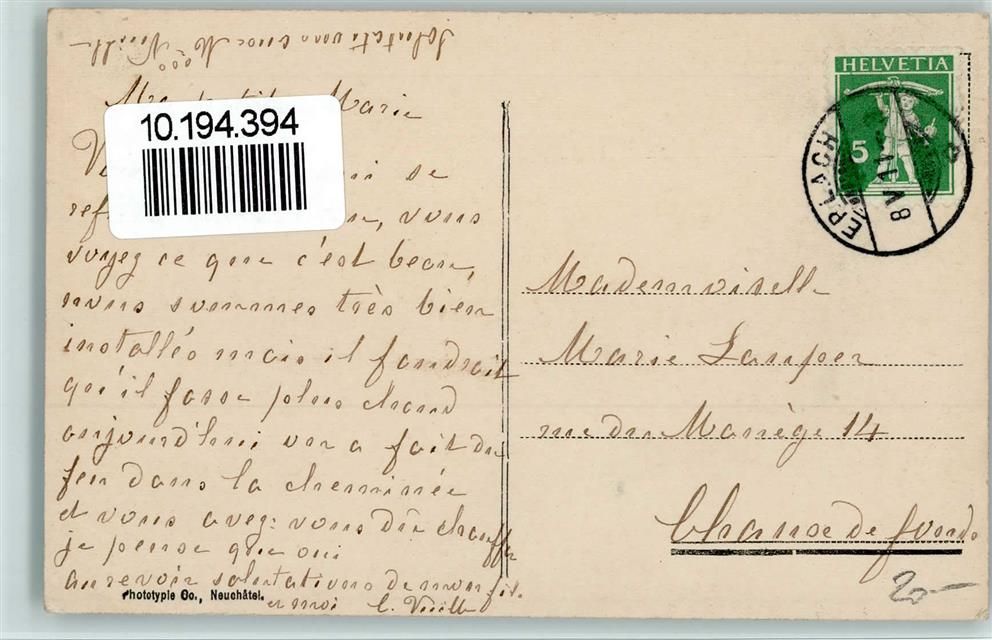 salutations aux Mes Vuille
Ma petite Marie
se
ref vous
voyez ce que c'est beau,
nous sommes très bien
installés mais il faudrait
qu'il fasse plus chaud
aujourd'hui on a fait du
feu dans la cheminée
et vous avez-vous dû chauffer
je pense que oui
au revoir salutations de mon fils.
et moi C. Vuille
Phototypie Co., Neuchâtel.
10.194.394
HELVETIA
5
ERLACH
Mademoiselle
Marie Lamper
rue du Manège 14
Chaux de fonds
20-